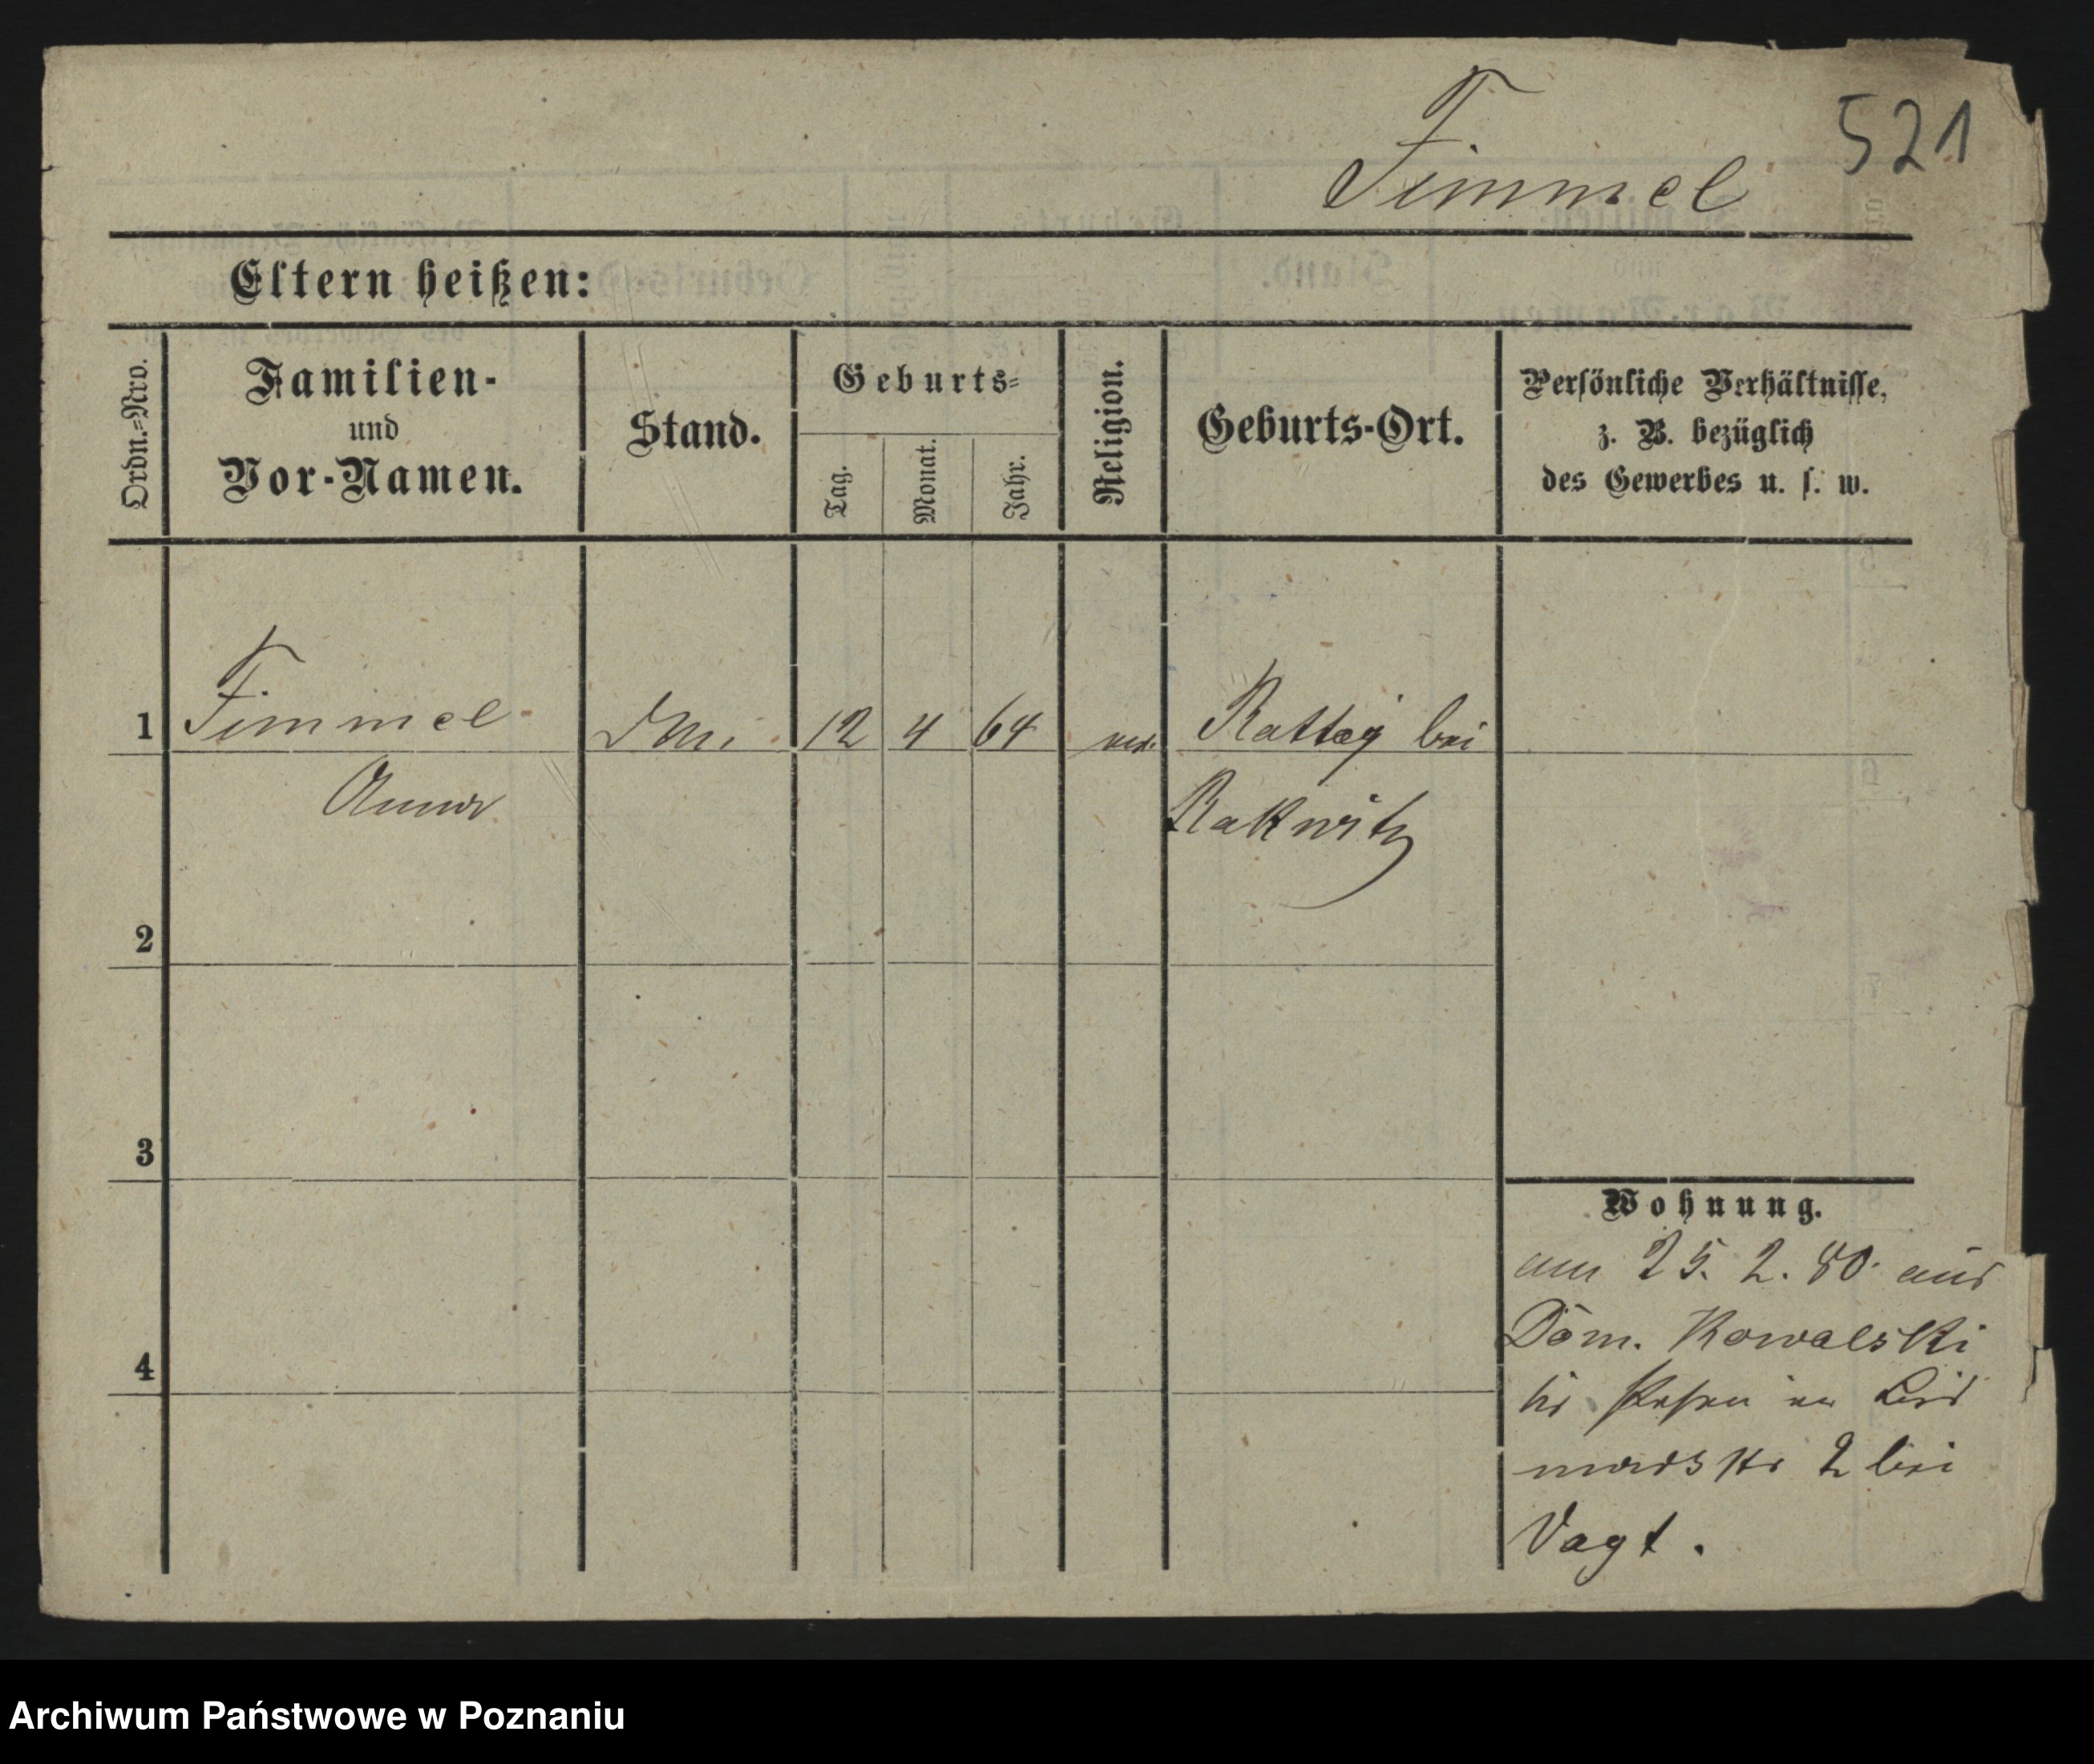 521
Fimmel
Eltern heißen:
Ordn.=Nro.
Familien-
und
Vor-Namen.
Stand.
Geburts=
Tag.
Monat.
Jahr.
Religion.
Geburts-Ort.
Persönliche Verhältnisse,
z. B. bezüglich
des Gewerbes u. s. w.
1
Fimmel
12
4
64
Rattay bei
Anna
Rakwitz
2
3
Wohnung.
am 25. 2. 80. aus
Dom. Kowalski
4
Posen
2 bei
Vagt.
Archiwum Państwowe w Poznaniu